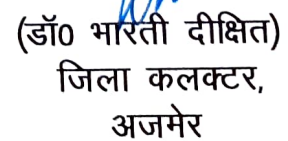 (डॉ0 भारती दीक्षित)
जिला कलक्टर,
अजमेर